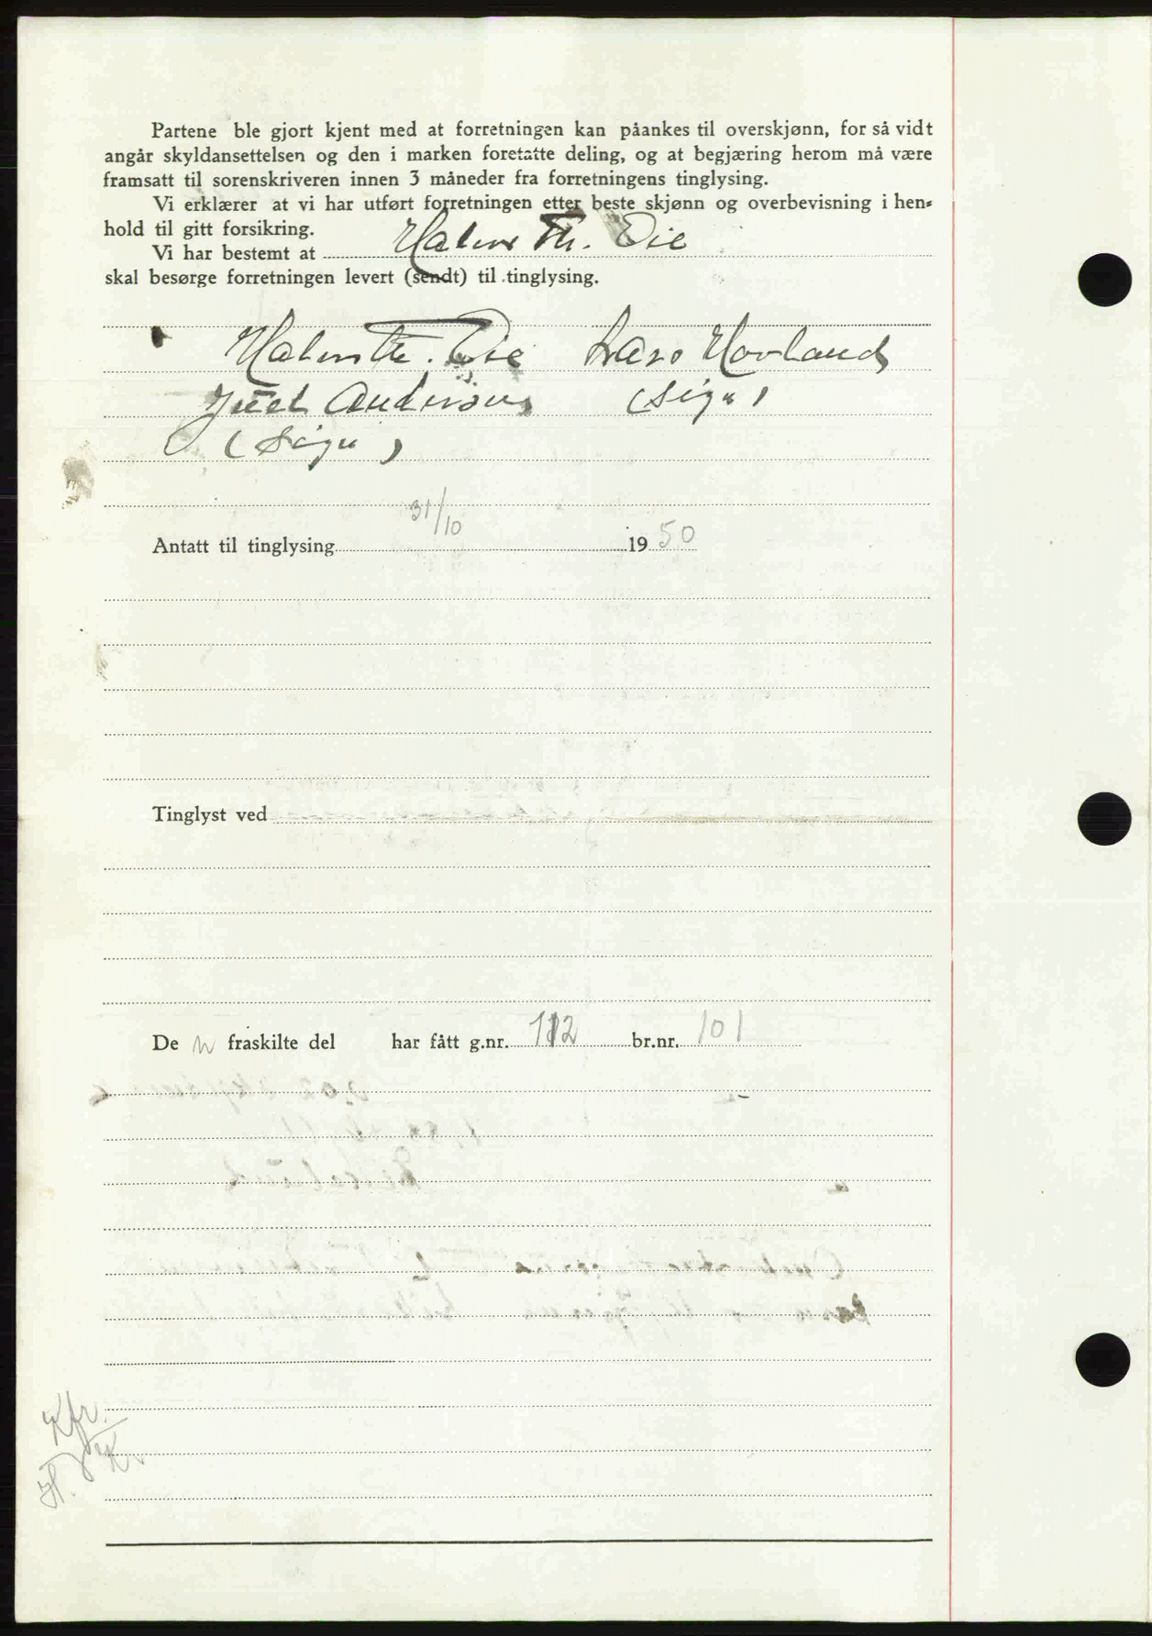 Partene ble gjort kjent med at forretningen kan påankes til overskjønn, for så vidt
angår skyldansettelsen og den i marken foretatte deling, og at begjæring herom må være
framsatt til sorenskriveren innen 3 måneder fra forretningens tinglysing.
Vi erklærer at vi har utført forretningen etter beste skjønn og overbevisning i hen-
hold til gitt forsikring.
Vi har bestemt at Halvor Th. Øie
skal besørge forretningen levert (sendt) til tinglysing.
Halvor Th. Øie Lars Hovland
Juel Andersen (sign)
(sign)
Antatt til tinglysing 31/10 1950
Tinglyst ved
De n fraskilte del har fått g.nr. 112 br.nr. 101